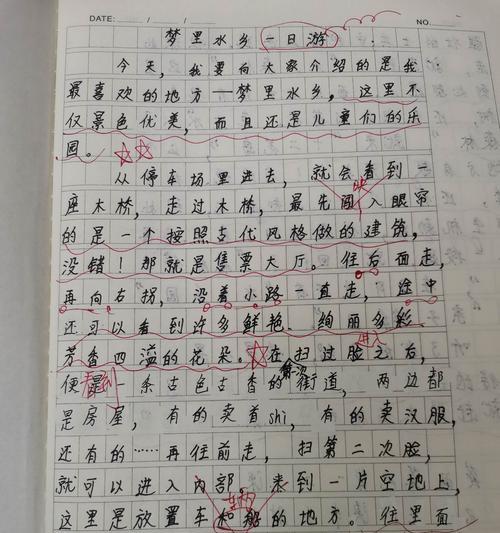 DATE: / / NO.
梦里水乡一日游
今天，我要向大家介绍的是我
最喜欢的地方—梦里水乡，这里不
仅景色优美，而且还是儿童们的乐
园。
从停车场里进去，就会看到一
座木桥，走过木桥，最先闯入眼帘
的是一个按照古代风格做的建筑，
没错！那就是售票大厅。往后面走，
再向右拐，沿着小路一直走，途中
还可以看到许多鲜艳、绚丽多彩、
芳香四溢的花朵。在扫过脸之后，
进入
便是一条古色古香的街道，两边都
是房屋，有的卖着shi，有的卖汉服，
还有的……再往前走，扫第二次脸，
就可以进入内部。来到一片空地上，
这里是放置车和船的地方。往里面